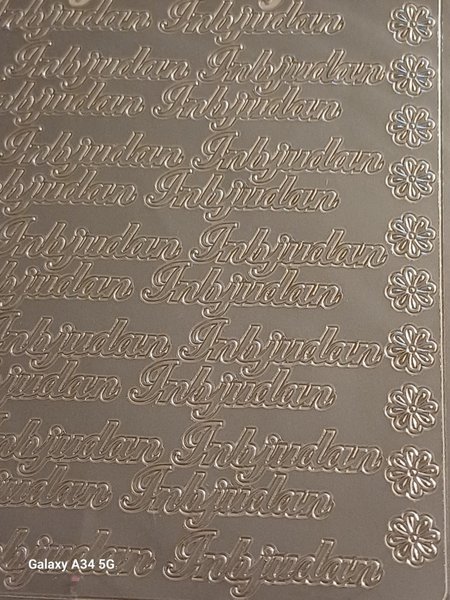 Inbjudan Inbjudan
Inbjudan Inbjudan
Inbjudan Inbjudan
Inbjudan Inbjudan
Inbjudan Inbjudan
Inbjudan Inbjudan
Inbjudan Inbjudan
Inbjudan Inbjudan
Inbjudan Inbjudan
Inbjudan Inbjudan
Inbjudan Inbjudan
Inbjudan Inbjudan
Galaxy A34 5G